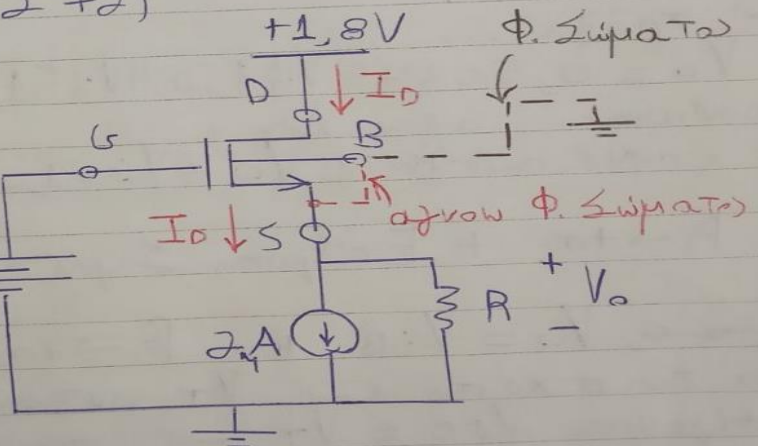 2 +2)
+1,8V
Φ. Σώματος
D
I_D
G
B
αγνοώ Φ. Σώματος
I_D
S
+
R
V_o
−
2μA